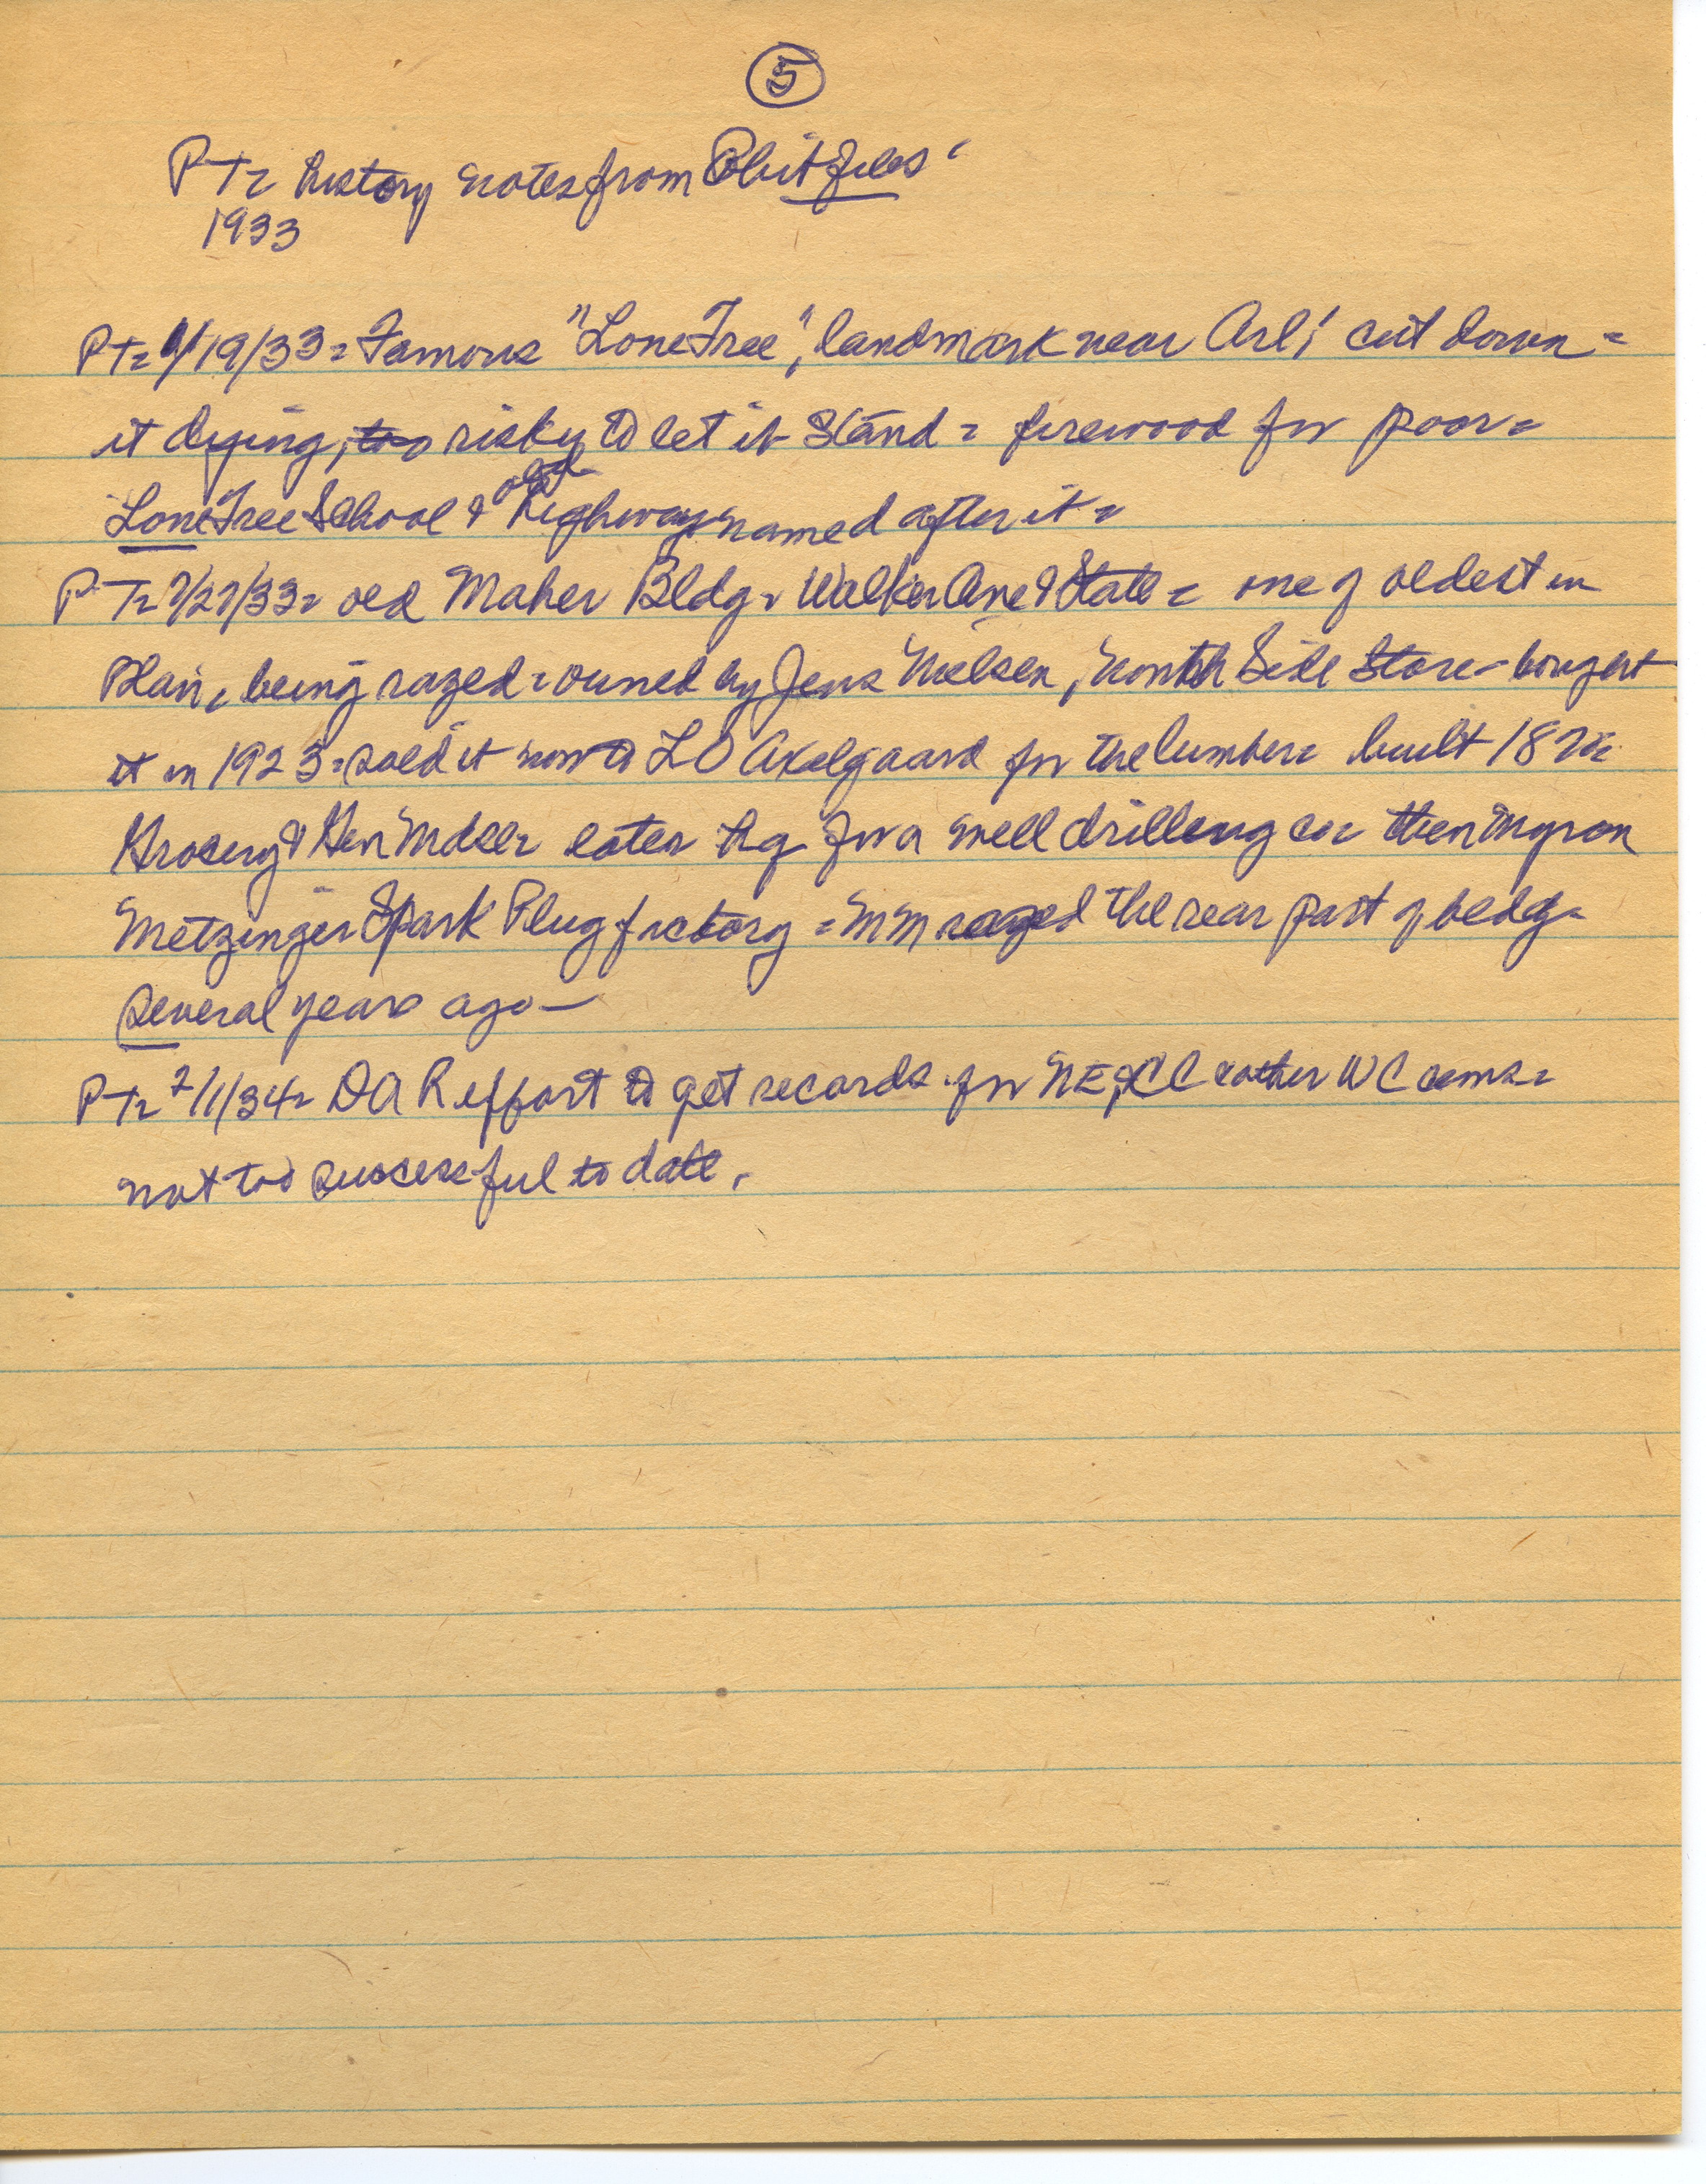 5
PT= history notes from Obit files
1933
PT= 1/19/33= Famous "Lone Tree", landmark near Arl, cut down=
it dying, too risky to let it stand= firewood for poor=
Lone Tree School & old highway named after it=
PT= 7/27/33= old Maher Bldg= Walker Ave & State= one of oldest in
Blair, being razed= owned by Jens Nielsen, North Side Store- bought
it in 1923= sold it now to LO Axelgaard for the lumber= built
Grocery & Gen Mdse= later hq for a well drilling co= then Myron
Metzinger Spark Plug factory = MM razed the rear part of bldg=
several years ago—
PT= 2/1/34= DAR effort to get records for NE, &other WC cems=
not too successful to date.